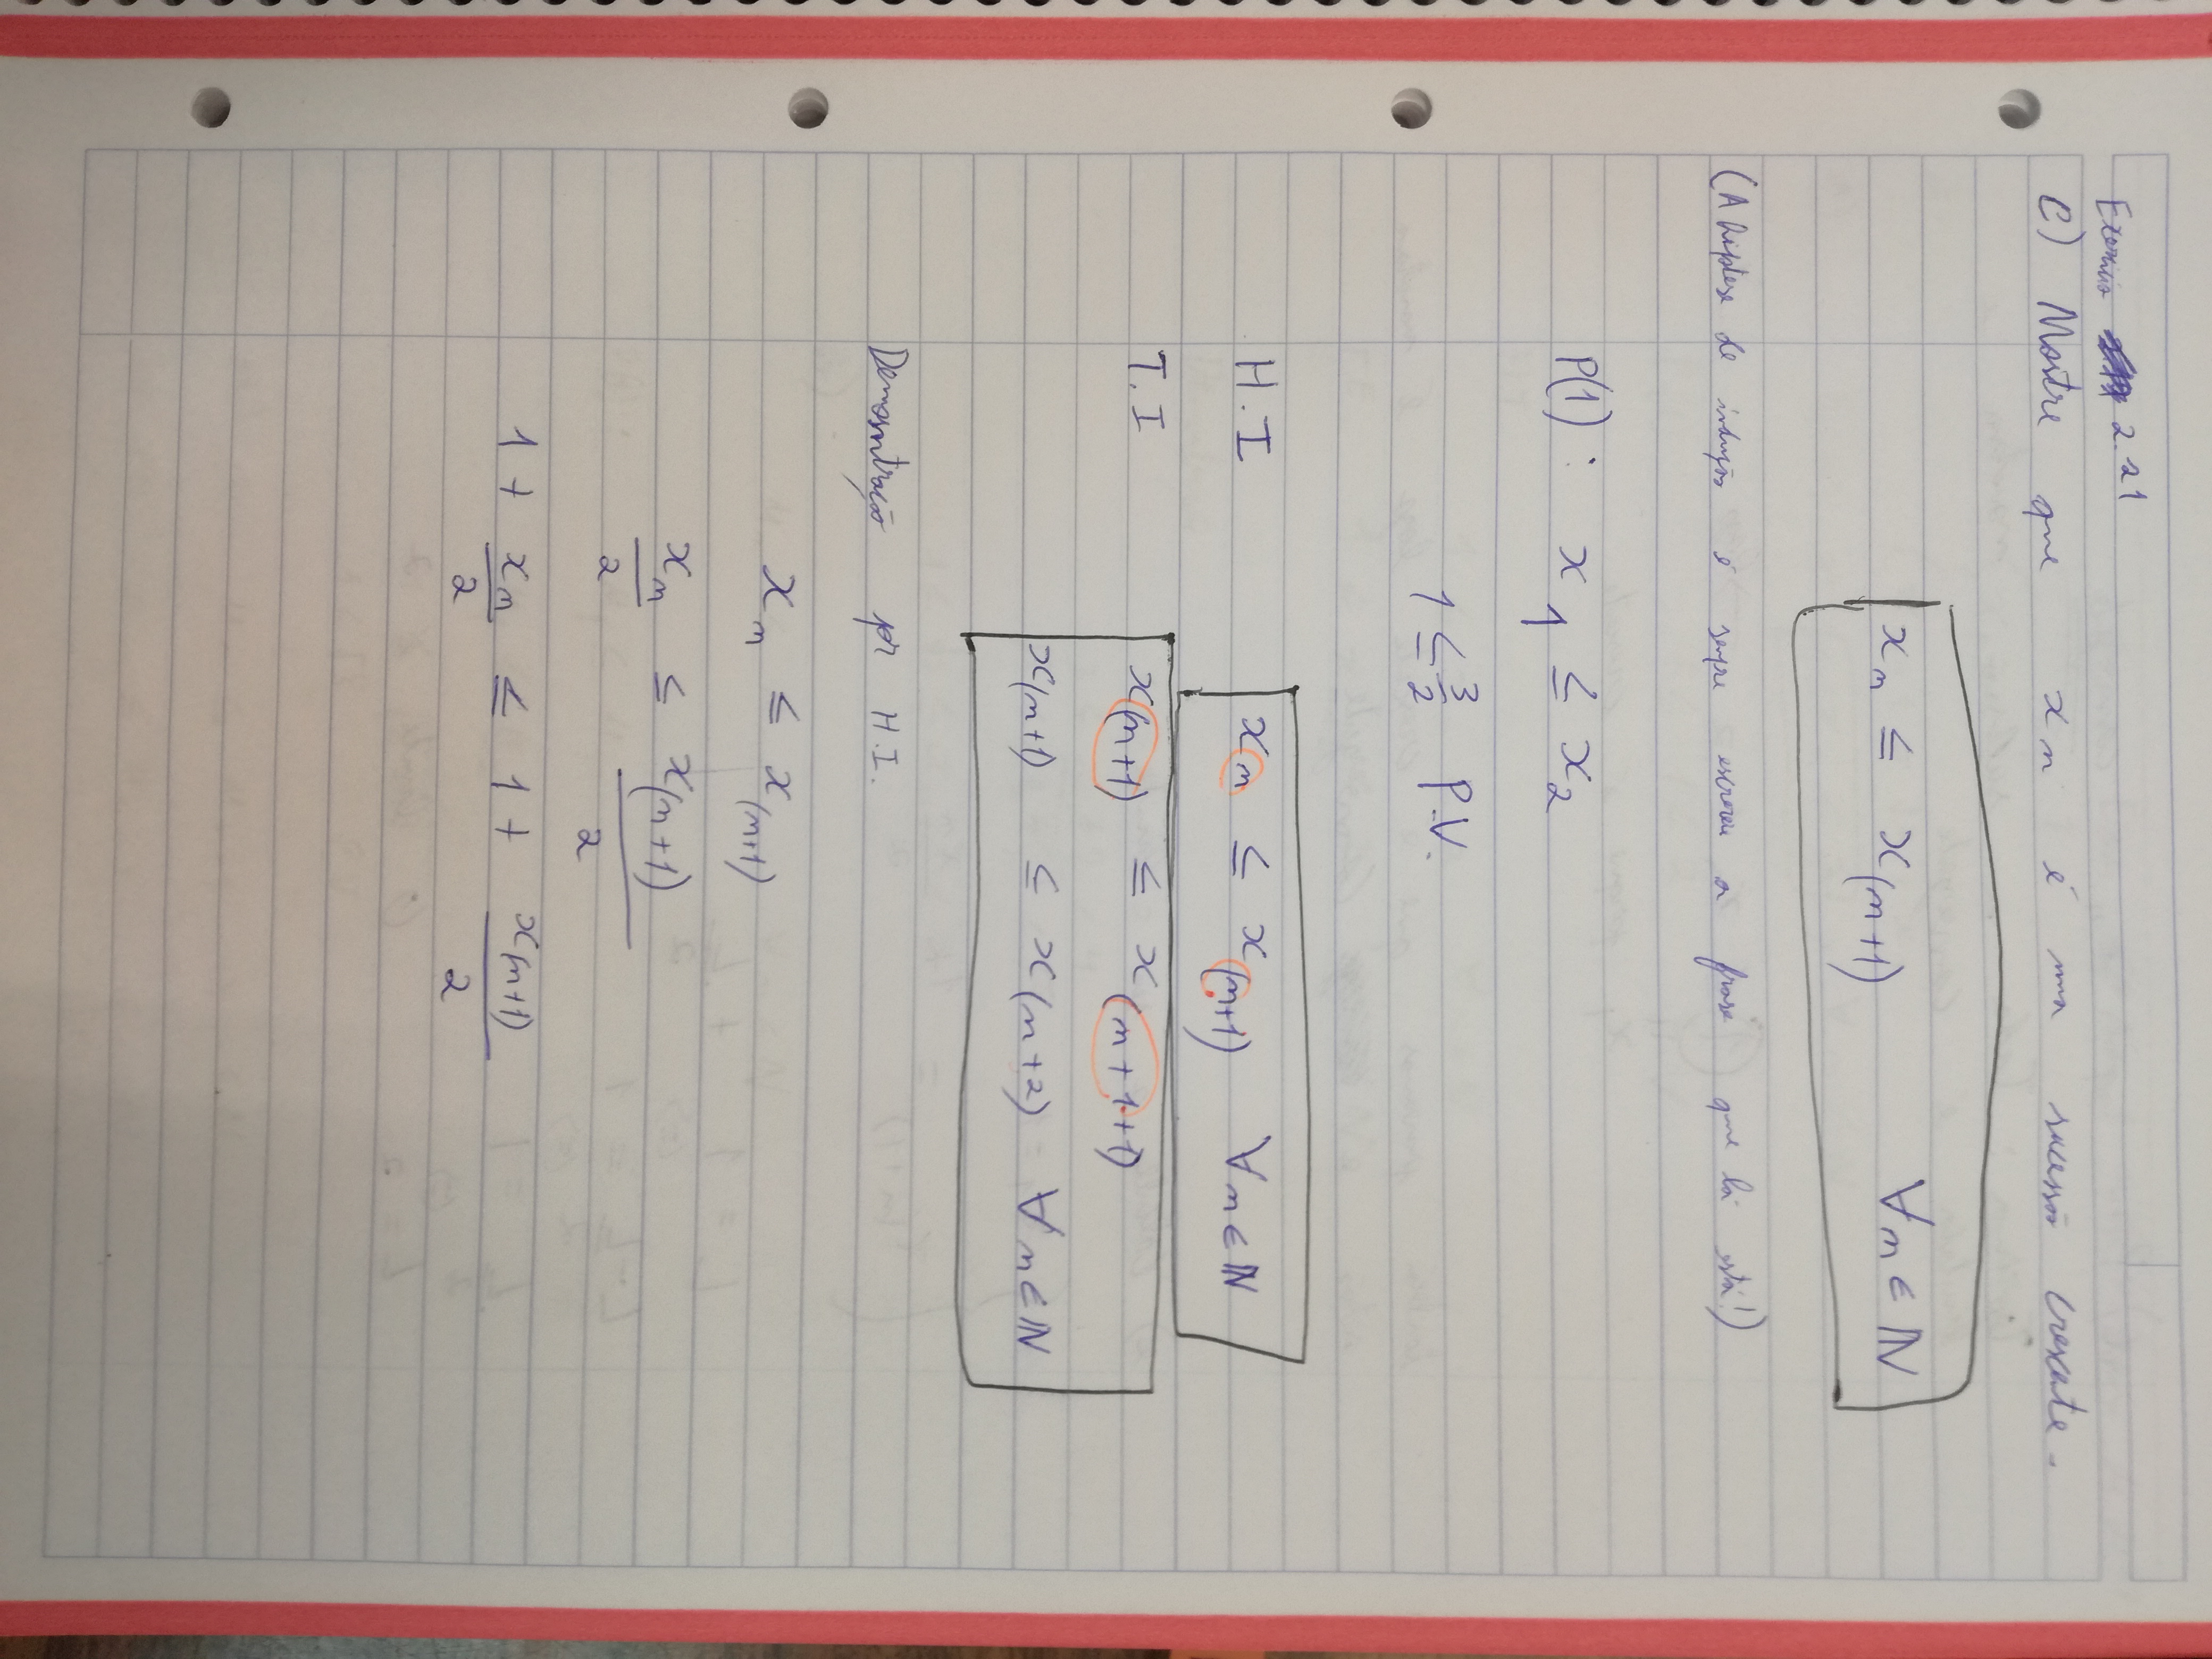 Exercício 2.21
C) Mostre que xn é uma sucessão crescente.
xn ≤ x(n+1) ∀n ∈ ℕ
(A hiptese de indução é sempre escrever a frase que lá está!)
P(1): x1 ≤ x2
1 ≤ 3/2 P.V.
H.I xn ≤ x(n+1) ∀n ∈ ℕ
T.I x(n+1) ≤ x(n+1+1)
x(n+1) ≤ x(n+2) ∀n ∈ ℕ
Demosntração por H.I.
xn ≤ x(n+1)
xn/2 ≤ x(n+1)/2
1 + xn/2 ≤ 1 + x(n+1)/2